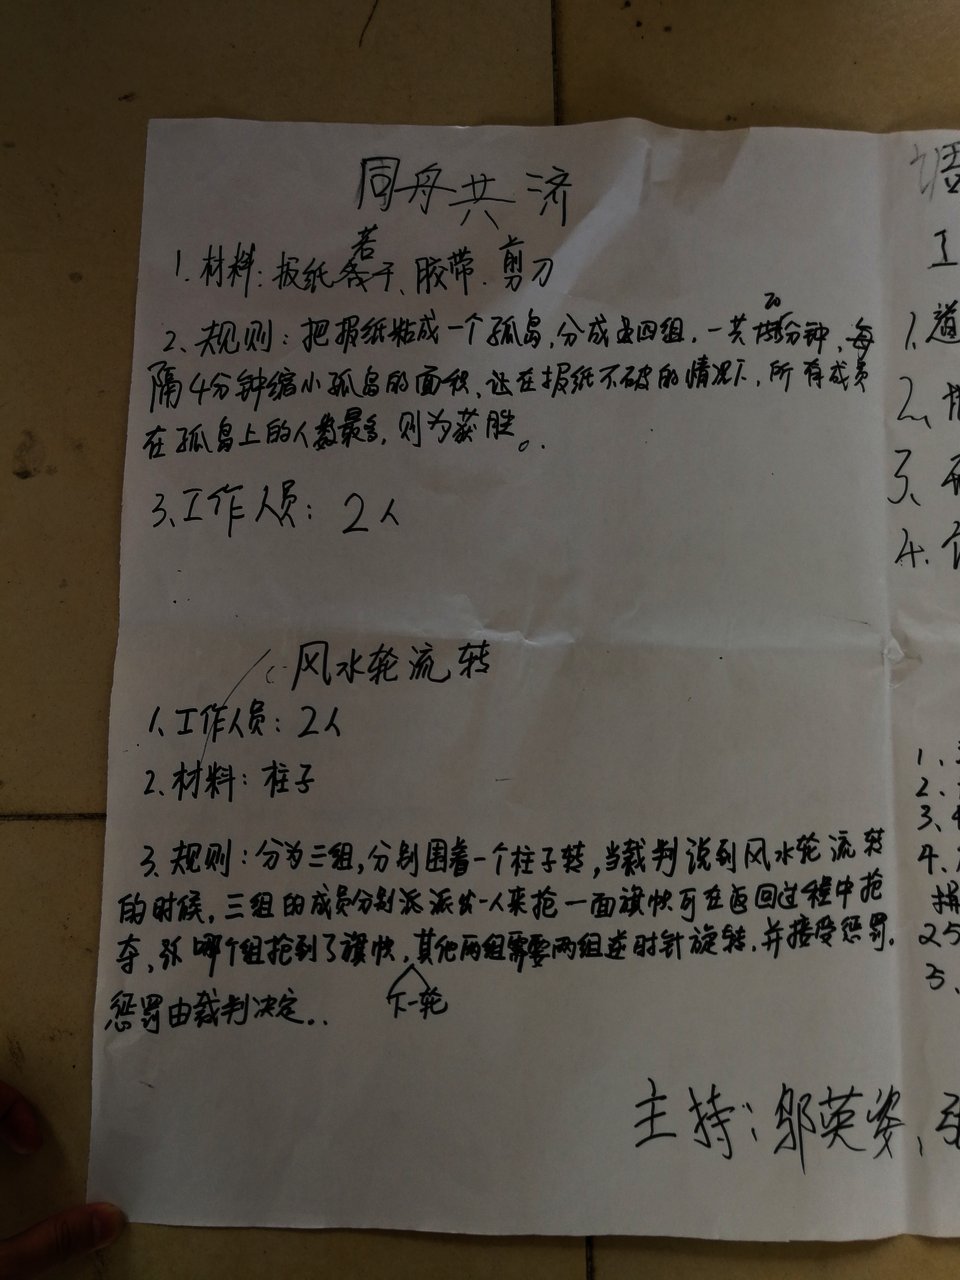 同舟共济
1. 材料：报纸若干、胶带、剪刀
2、规则：把报纸粘成一个孤岛，分成四组，一共20分钟，每
隔4分钟缩小孤岛的面积，让在报纸不破的情况下，所有成员
在孤岛上的人数最多，则为获胜。
3、工作人员：2人
风水轮流转
1、工作人员：2人
2、材料：柱子
3、规则：分为三组，分别围着一个柱子转，当裁判说到风水轮流转
的时候，三组的成员分别派出一人来抢一面旗帜可在返回过程中抢
夺，哪个组抢到了旗帜，其他两组需要下一轮两组逆时针旋转，并接受惩罚，
惩罚由裁判决定。
主持：邬英姿、
1、道
2、
3、
4、
1、
2、
3、
4、
25
3、